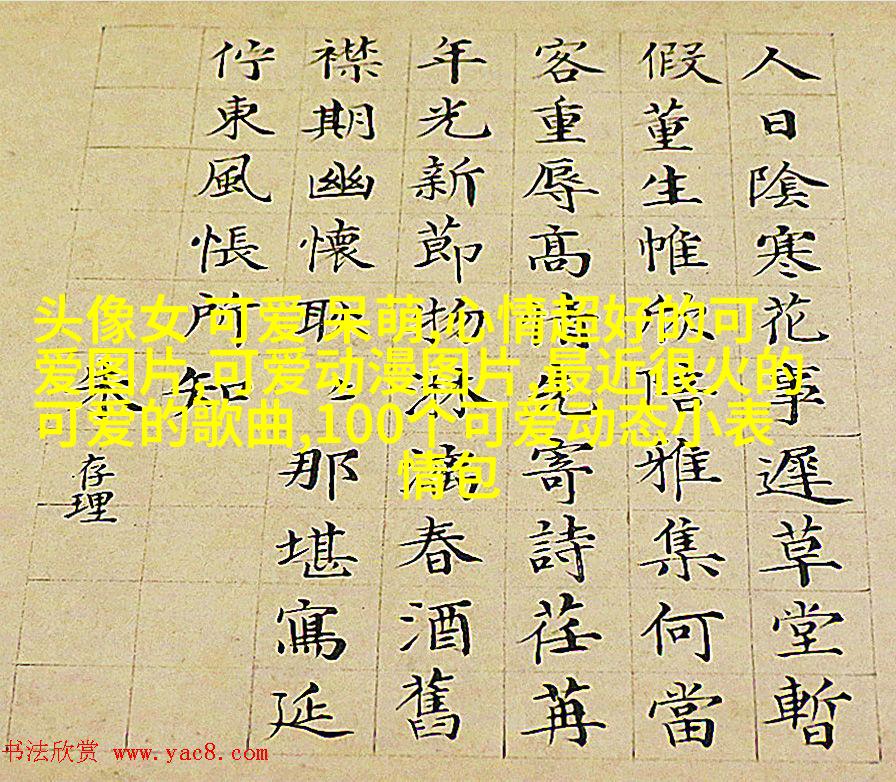 人日陰寒花事遲草堂暫
假董生帷欣陪雅集何當
客重辱高先寄詩荏苒
年光新節物淋漓春酒舊
襟期幽懷耿〻那堪寫延
佇東風悵所知
朱存理
头像女 可爱 呆萌,心情超好的可
爱图片,可爱动漫图片,最近很火的
可爱的歌曲,100个可爱动态小表
情包
书法欣赏 www.yac8.com